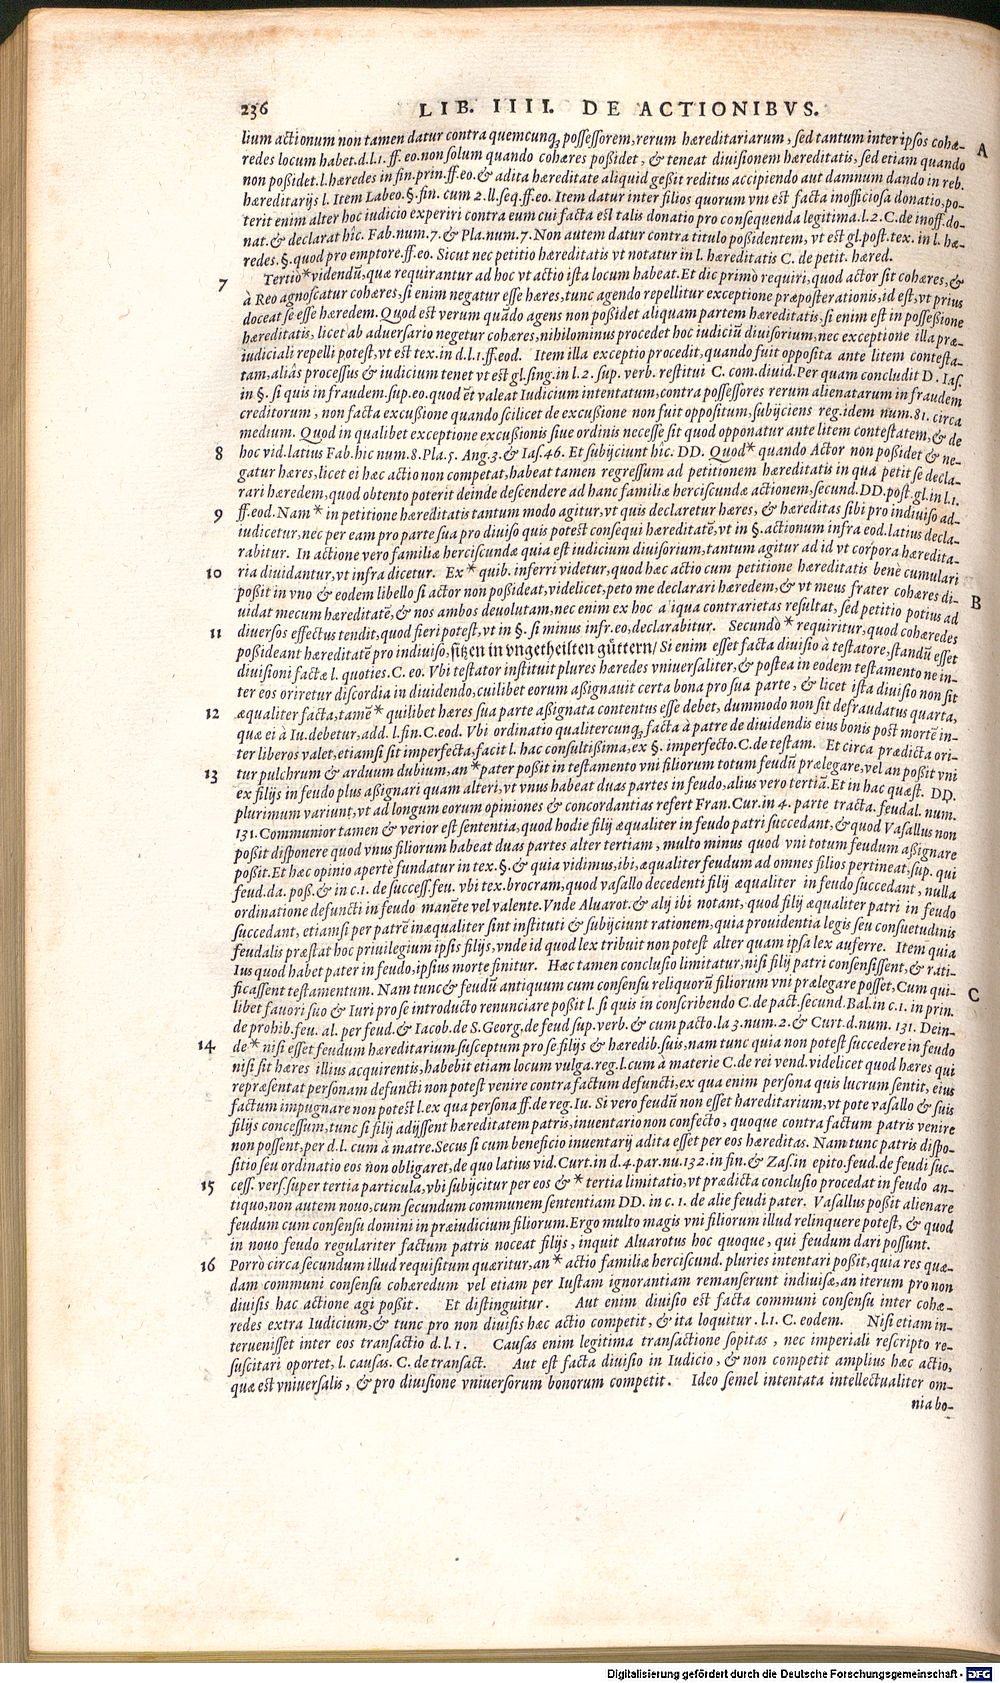 236 LIB. IIII. DE ACTIONIBVS.
lium actionum non tamen datur contra quemcunq; possessorem, rerum hæreditariarum, sed tantum inter ipsos cohæ- A
redes locum habet. d.l.1. ff. eo. non solum quando cohæres poßidet, & teneat diuisionem hæreditatis, sed etiam quando
non poßidet. l. hæredes in fin. prin. ff. eo. & adita hæreditate aliquid geßit reditus accipiendo aut damnum dando in reb.
hæreditarijs l. Item Labeo. §. fin. cum 2. ll. seq. ff. eo. Item datur inter filios quorum vni est facta inofficiosa donatio, po-
terit enim alter hoc iudicio experiri contra eum cui facta est talis donatio pro consequenda legitima. l.2. C. de inoff. do-
nat. & declarat hîc. Fab. num. 7. & Pla. num. 7. Non autem datur contra titulo poßidentem, vt est gl. post. tex. in l. hæ-
redes. §. quod pro emptore. ff. eo. Sicut nec petitio hæreditatis vt notatur in l. hæreditatis C. de petit. hæred.
7 Tertiò * videndũ, quæ requirantur ad hoc vt actio ista locum habeat. Et dic primò requiri, quod actor sit cohæres, &
à Reo agnoscatur cohæres, si enim negatur esse hæres, tunc agendo repellitur exceptione præposterationis, id est, vt prius
doceat se esse hæredem. Quod est verum quãdo agens non poßidet aliquam partem hæreditatis, si enim est in possessione
hæreditatis, licet ab aduersario negetur cohæres, nihilominus procedet hoc iudiciũ diuisorium, nec exceptione illa præ-
iudiciali repelli potest, vt est tex. in d.l.1. ff. eod. Item illa exceptio procedit, quando fuit opposita ante litem contesta-
tam, aliâs processus & iudicium tenet vt est gl. sing. in l. 2. sup. verb. restitui C. com. diuid. Per quam concludit D. Ias.
in §. si quis in fraudem. sup. eo. quod ēt valeat Iudicium intentatum, contra possessores rerum alienatarum in fraudem
creditorum, non facta excußione quando scilicet de excußione non fuit oppositum, subijciens reg. idem num. 81. circa
medium. Quod in qualibet exceptione excußionis siue ordinis necesse sit quod opponatur ante litem contestatem, & de
8 hoc vid. latius Fab. hic num. 8. Pla. 5. Ang. 3. & Ias. 46. Et subijciunt hîc. DD. Quod * quando Actor non poßidet & ne-
gatur hæres, licet ei hæc actio non competat, habeat tamen regressum ad petitionem hæreditatis in qua petit se decla-
rari hæredem, quod obtento poterit deinde descendere ad hanc familiæ herciscundæ actionem, secund. DD. post. gl. in l.1.
9 ff. eod. Nam * in petitione hæreditatis tantum modo agitur, vt quis declaretur hæres, & hæreditas sibi pro indiuiso ad-
iudicetur, nec per eam pro parte sua pro diuiso quis potest consequi hæreditatē, vt in §. actionum infra eod. latius decla-
rabitur. In actione vero familiæ herciscundæ quia est iudicium diuisorium, tantum agitur ad id vt corpora hæredita-
10 ria diuidantur, vt infra dicetur. Ex * quib. inferri videtur, quod hæc actio cum petitione hæreditatis benè cumulari
poßit in vno & eodem libello si actor non poßideat, videlicet, peto me declarari hæredem, & vt meus frater cohæres di- B
uidat mecum hæreditatē, & nos ambos deuolutam, nec enim ex hoc aliqua contrarietas resultat, sed petitio potius ad
11 diuersos effectus tendit, quod fieri potest, vt in §. si minus infr. eo, declarabitur. Secundò * requiritur, quod cohæredes
poßideant hæreditatē pro indiuiso, sitzen in vngetheilten gůttern/ Si enim esset facta diuisio à testatore, standũ esset
diuisioni factæ l. quoties. C. eo. Vbi testator instituit plures hæredes vniuersaliter, & postea in eodem testamento ne in-
ter eos oriretur discordia in diuidendo, cuilibet eorum aßignauit certa bona pro sua parte, & licet ista diuisio non sit
12 æqualiter facta, tamē * quilibet hæres sua parte aßignata contentus esse debet, dummodo non sit defraudatus quarta,
quæ ei à Iu. debetur, add. l. fin. C. eod. Vbi ordinatio qualitercunq; facta à patre de diuidendis eius bonis post mortē in-
ter liberos valet, etiamsi sit imperfecta, facit l. hac consultißima. ex §. imperfecto. C. de testam. Et circa prædicta ori-
13 tur pulchrum & arduum dubium, an * pater poßit in testamento vni filiorum totum feudũ prælegare, vel an poßit vni
ex filijs in feudo plus aßignari quam alteri, vt vnus habeat duas partes in feudo, alius vero tertiā. Et in hac quæst. DD.
plurimum variunt, vt ad longum eorum opiniones & concordantias refert Fran. Cur. in 4. parte tracta. feudal. num.
131. Communior tamen & verior est sententia, quod hodie filij æqualiter in feudo patri succedant, & quod Vasallus non
poßit disponere quod vnus filiorum habeat duas partes alter tertiam, multo minus quod vni totum feudum aßignare
poßit. Et hæc opinio apertè fundatur in tex. §. & quia vidimus, ibi, æqualiter feudum ad omnes filios pertineat, sup. qui
feud. da. poß. & in c.1. de success. feu. vbi tex. brocram, quod vasallo decedenti filij æqualiter in feudo succedant, nulla
ordinatione defuncti in feudo manēte vel valente. Vnde Aluarot. & alij ibi notant, quod filij æqualiter patri in feudo
succedant, etiamsi per patrē inæqualiter sint instituti & subijciunt rationem, quia prouidentia legis seu consuetudinis
feudalis præstat hoc priuilegium ipsis filijs, vnde id quod lex tribuit non potest alter quam ipsa lex auferre. Item quia
Ius quod habet pater in feudo, ipsius morte finitur. Hæc tamen conclusio limitatur, nisi filij patri consensissent, & rati-
ficassent testamentum. Nam tunc & feudũ antiquum cum consensu reliquorũ filiorum vni prælegare posset, Cum qui- C
libet fauori suo & Iuri pro se introducto renunciare poßit l. si quis in conscribendo C. de pact. secund. Bal. in c.1. in prin.
de prohib. feu. al. per feud. & Iacob. de S. Georg. de feud sup. verb. & cum pacto. la 3. num. 2. & Curt. d. num. 131. Dein-
14 de * nisi esset feudum hæreditarium susceptum pro se filijs & hæredib. suis, nam tunc quia non potest succedere in feudo
nisi sit hæres illius acquirentis, habebit etiam locum vulga. reg. l. cum à materie C. de rei vend. videlicet quod hæres qui
repræsentat personam defuncti non potest venire contra factum defuncti, ex qua enim persona quis lucrum sentit, eius
factum impugnare non potest l. ex qua persona ff. de reg. Iu. Si vero feudũ non esset hareditarium, vt pote vasallo & suis
filijs concessum, tunc si filij adijssent hæreditatem patris, inuentario non confecto, quoque contra factum patris venire
non possent, per d. l. cum à matre. Secus si cum beneficio inuentarij adita esset per eos hæreditas. Nam tunc patris dispo-
sitio seu ordinatio eos non obligaret, de quo latius vid. Curt. in d. 4. par. nu. 132. in fin. & Zas. in epito. feud. de feudi suc-
15 cess. vers. super tertia particula, vbi subijcitur per eos & * tertia limitatio, vt prædicta conclusio procedat in feudo an-
tiquo, non autem nouo, cum secundum communem sententiam DD. in c. 1. de alie feudi pater. Vasallus poßit alienare
feudum cum consensu domini in præiudicium filiorum. Ergo multo magis vni filiorum illud relinquere potest, & quod
in nouo feudo regulariter factum patris noceat filijs, inquit Aluarotus hoc quoque, qui feudum dari possunt.
16 Porrò circa secundum illud requisitum quæritur, an * actio familiæ herciscund. pluries intentari poßit, quia res quæ-
dam communi consensu cohæredum vel etiam per Iustam ignorantiam remanserunt indiuisæ, an iterum pro non
diuisis hac actione agi poßit. Et distinguitur. Aut enim diuisio est facta communi consensu inter cohæ-
redes extra Iudicium, & tunc pro non diuisis hæc actio competit, & ita loquitur. l.1. C. eodem. Nisi etiam in-
teruenisset inter eos transactio d. l. 1. Causas enim legitima transactione sopitas, nec imperiali rescripto re-
suscitari oportet, l. causas. C. de transact. Aut est facta diuisio in Iudicio, & non competit amplius hæc actio,
quæ est vniuersalis, & pro diuisione vniuersorum bonorum competit. Ideo semel intentata intellectualiter om-
nia bo-
Digitalisierung gefördert durch die Deutsche Forschungsgemeinschaft - DFG